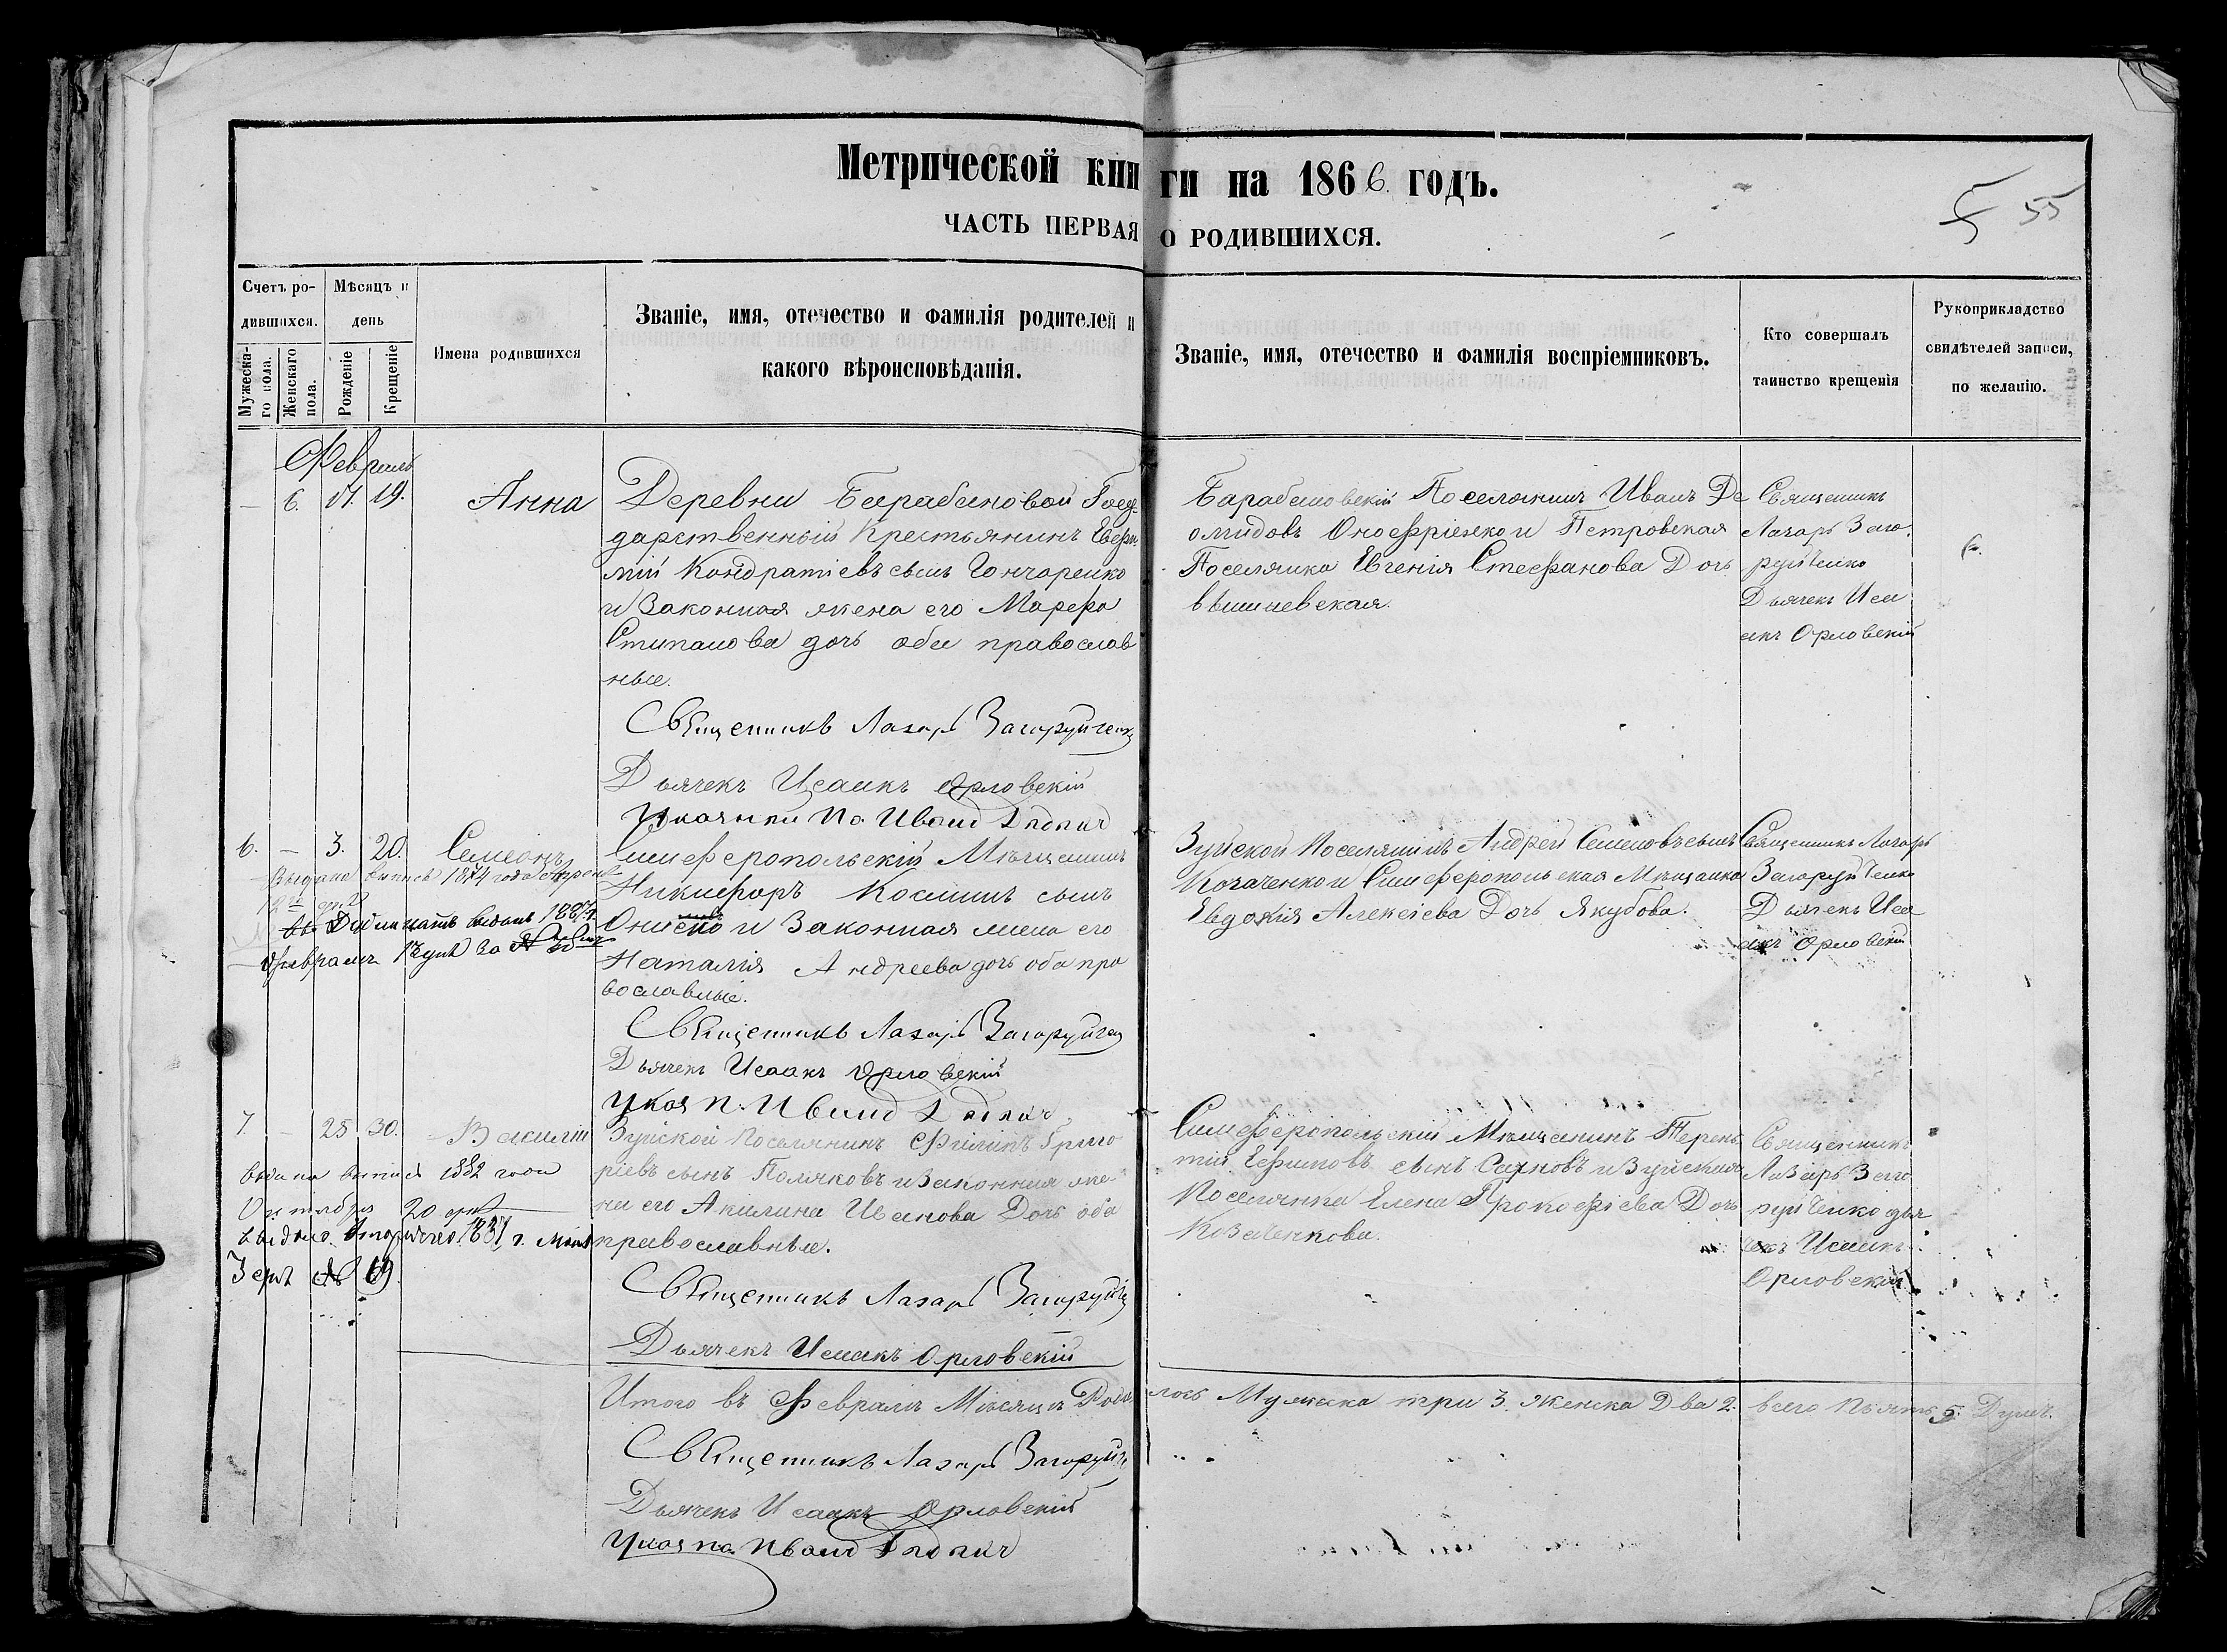 Метрической книги на 1866. годъ.
ЧАСТЬ ПЕРВАЯ О РОДИВШИХСЯ.
5 55
Счетъ родившихся.
Мужескаго пола.
Женскаго пола.
Мѣсяцъ и день
Рожденіе
Крещеніе
Имена родившихся
Званіе, имя, отечество и фамилія родителей и
какого вѣроисповѣданія.
Званіе, имя, отечество и фамилія воспріемниковъ.
Кто совершалъ
таинство крещенія
Рукоприкладство
свидѣтелей записи,
по желанію.
Февраль
— 6. 17. 19. Анна
Деревни Барабановой Госу-
дарственный Крестьянинъ Ефи-
мій Кондратіевъ сынъ Гончаренко
и Законная жена его Марфа
Стипанова дочь оба православ
ные.
Священникъ Лазарь Загоруйченко
Дьячекъ Исаакъ Орловскій
Барабановскій Поселянинъ Иванъ Де
омидовъ Оноефріенко и Петровская
Поселянка Евгенія Стефанова Дочь
Священникъ
Лазарь Заго
руйченко
Дьячекъ Иса
акъ Орловскій
6. — 3. 20. Семеонъ
Выдана выпись 1874 года
Симферопольскій Мѣщанинъ
Никифоръ Косминъ сынъ
и Законная жена его
Наталія Андреева дочь оба пра
вославные.
Священникъ Лазарь Загоруйченко
Дьячекъ Исаакъ Орловскій
Зуйской Поселянинъ Андрей Семеновъ сынъ
Козаченко и Симферопольская Мѣщанка
Евдокія Алексіева Дочь Якубова.
Священникъ Лазарь
Загоруйченко
Дьячекъ Иса
акъ Орловскій
7. — 25 30. Василій
выдана выпись 1882 года
Октября 20 дня
выдана вторично 1887 г. Мая
3 дня № 69.
Зуйской Поселянинъ Филипъ Григо
ріевъ сынъ Поляковъ и Законная же-
на его Акилина Иванова Дочь оба
православные.
Священникъ Лазарь Загоруйченко
Дьячекъ Исаакъ Орловскій
Симферопольскій Мѣщанинъ Терен
тій Ефимовъ сынъ и Зуйская
Поселянка Елена Прокофіева Дочь
Козаченкова.
Священникъ
Лазарь Заго
руйченко дья
чекъ Исаакъ
Орловскій
Итого въ Февралѣ Мѣсяцѣ Роди лось Мужеска три 3. Женска Два 2. всего Пять 5. Душъ.
Священникъ Лазарь Загоруйченко
Дьячекъ Исаакъ Орловскій